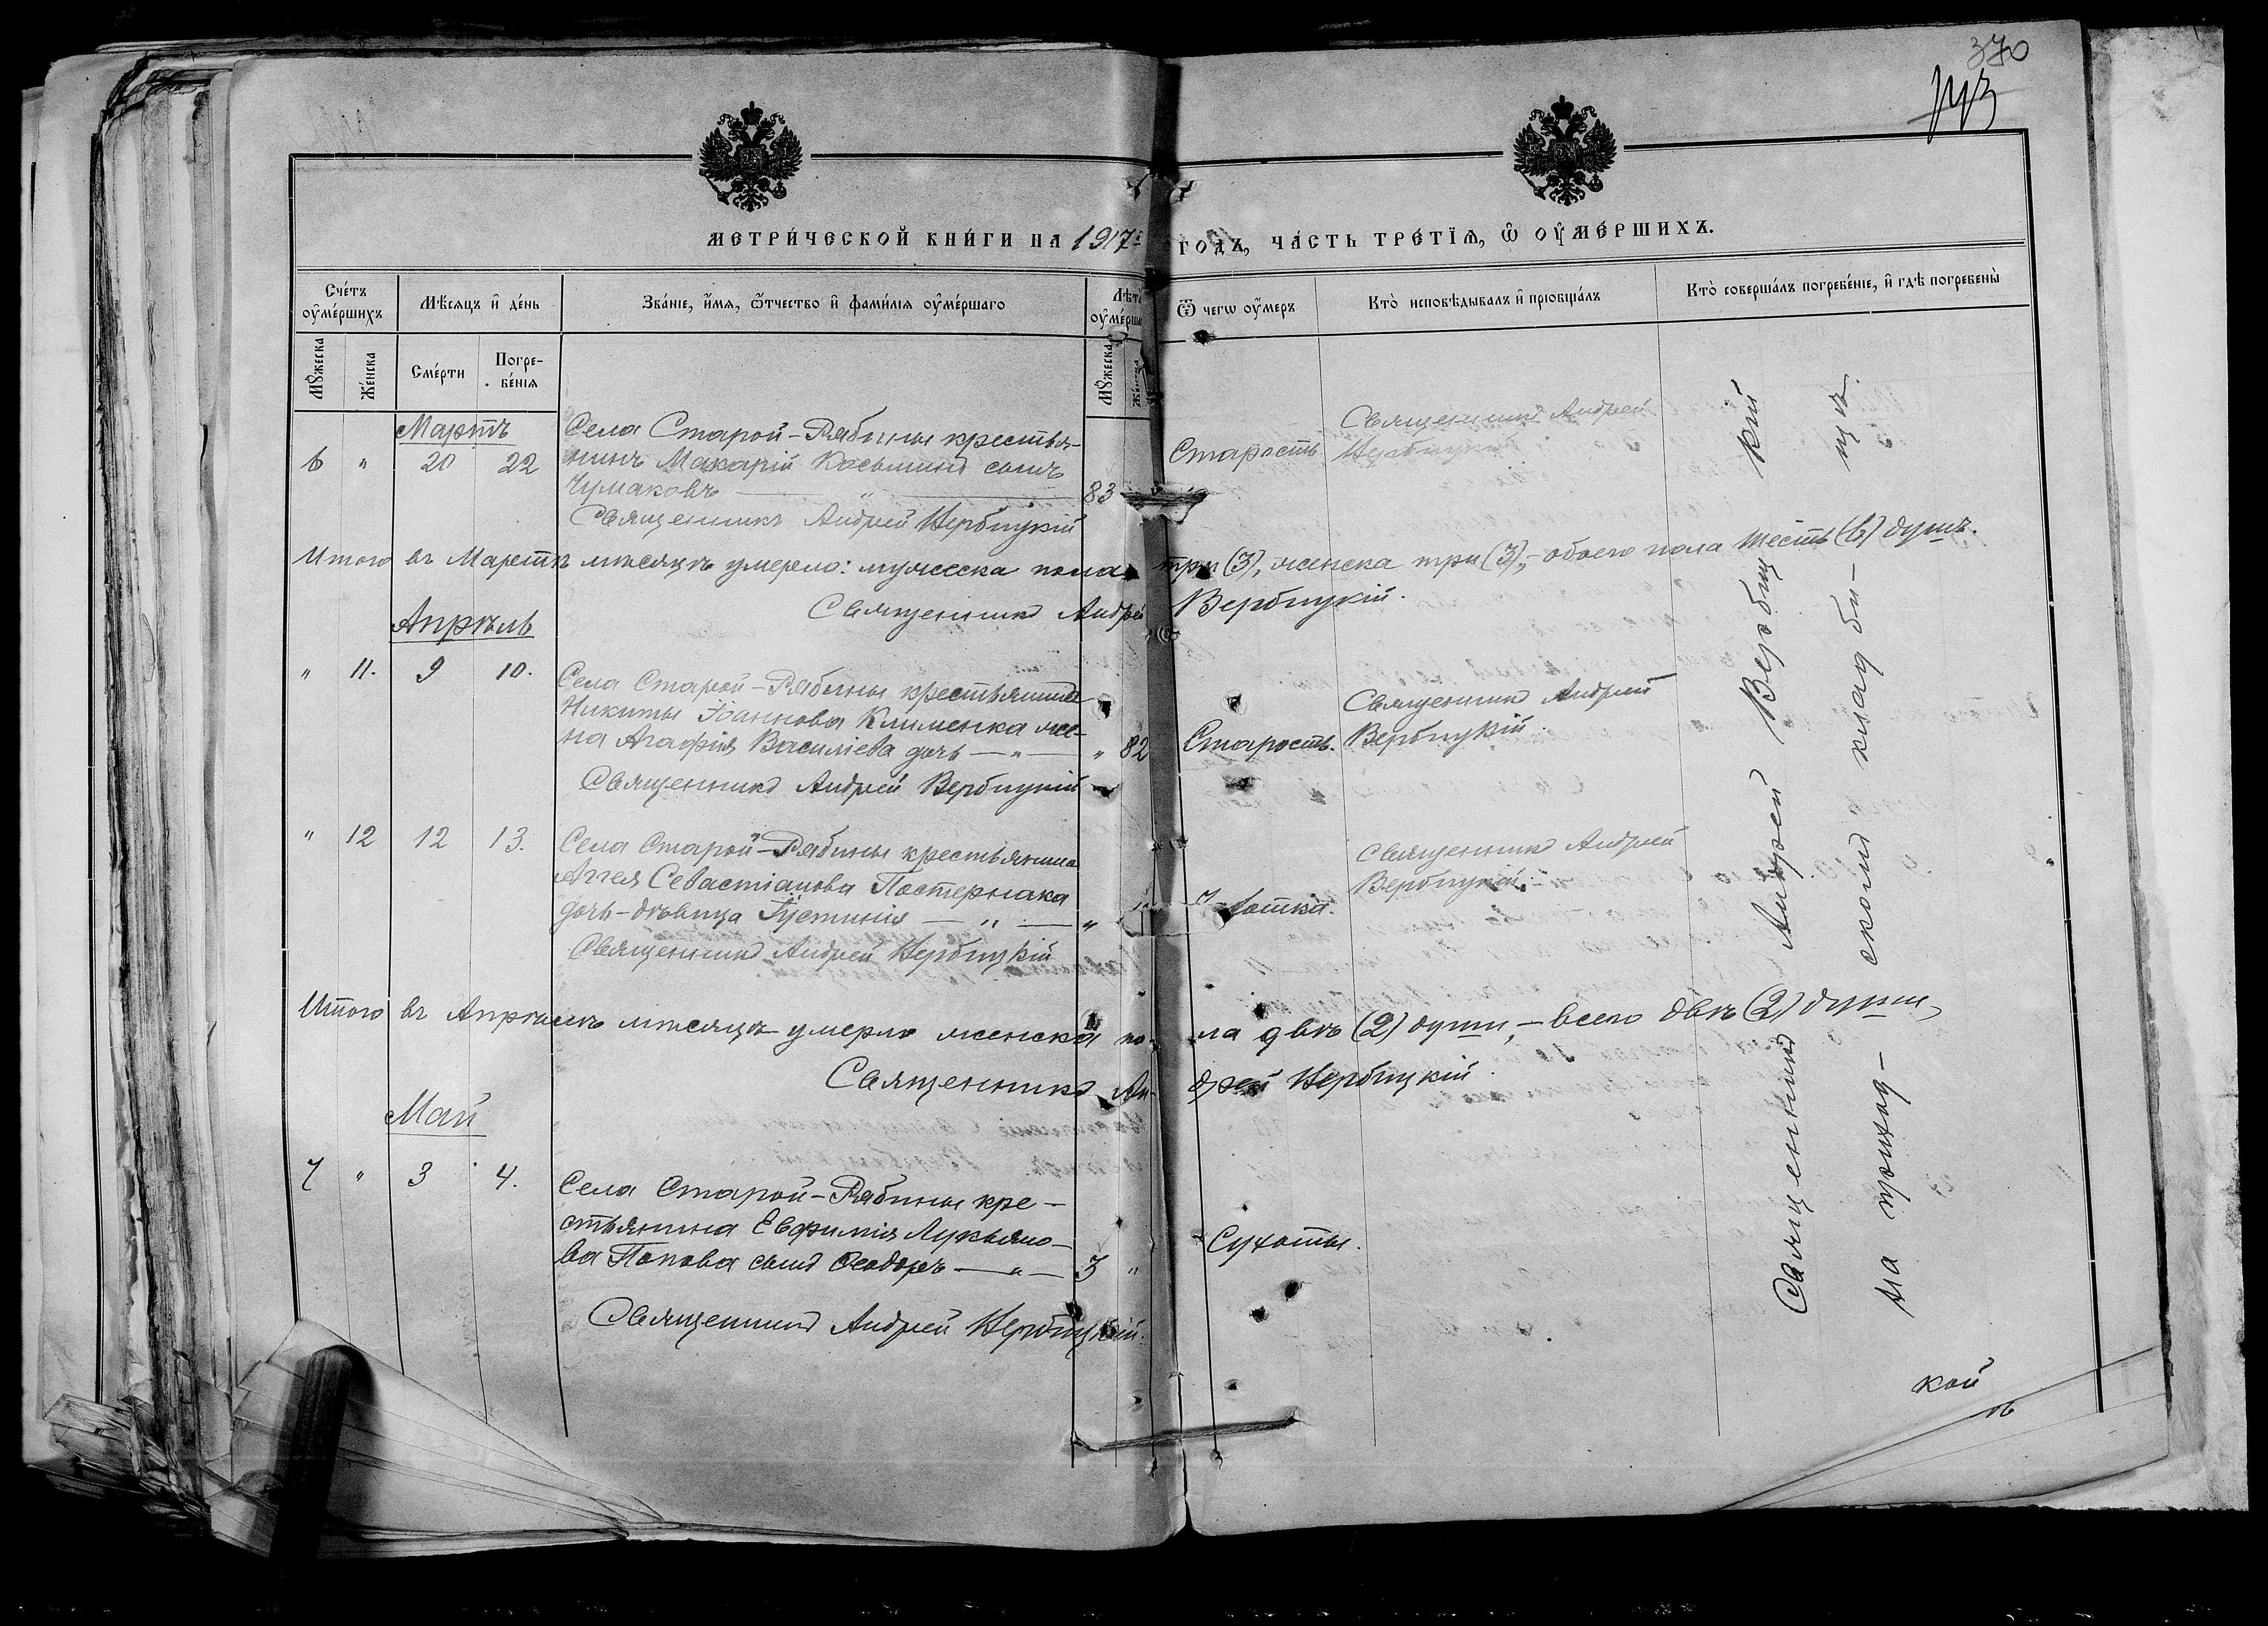 370
МЕТРИ́ЧЕСКОЙ КНИ́ГИ НА 1917й ГОДЪ, ЧА́СТЬ ТРЕ́ТІѦ, Ѡ ОУ҆МЕ́РШИХЪ.
Сче́тъ оу҆ме́ршихъ
Мѣ́сяцъ и҆ де́нь
Зва́ніе, и҆́мя, ѻ҆́тчество и҆ фами́лія оу҆ме́ршаго
Лѣта̀ оу҆ме́рша
Ѿ чегѡ оу҆́меръ
Кто̀ исповѣ́дывалъ и҆ прїобща́лъ
Кто̀ соверша́лъ погребе́ніе, и҆ гдѣ̀ погребены̀
Мꙋжеска
Же́нска
Сме́рти
Погре-
бе́нія
Мꙋжеска
Же́нска
Мартъ
6 " 20 22
Села Старой-Рябины крестья-
нинъ Макарій Косьминъ сынъ
Чумаковъ — " — 83
Старость
Священникъ Андрей
Вербицкій
Священникъ Андрей Вербицкій
Итого въ Мартѣ мѣсяцѣ умерло: мужеска пола три (3), женска три (3),- обоего пола шесть (6) душъ.
Священникъ Андрей Вербицкій.
Апрѣль
" 11. 9 10.
Села Старой-Рябины крестьянина
Никиты Іоаннова Клименка же-
на Агафія Василіева дочь — " — " 82
Старость.
Священникъ Андрей
Вербицкій
Священникъ Андрей Вербицкій
" 12 12 13.
Села Старой-Рябины крестьянина
Аггея Севастіанова Постернака
дочь-дѣвица Іустинія — " — "
Священникъ Андрей
Вербицкій.
Священникъ Андрей Вербицкій
Итого въ Апрѣлѣ мѣсяцѣ умерло женска по- ла двѣ (2) души,- всего двѣ (2) души,
Священникъ Ан- дрей Вербицкій.
Май
7 " 3 4.
Села Старой-Рябины кре-
стьянина Евфимія Лукьяно-
ва Попова сынъ Ѳеодоръ — " — 3 "
Сухоты.
Священникъ Андрей Вербицкій.
Священникъ Андрей Вербиц кій
на приход- скомъ клад би- щѣ.
кой